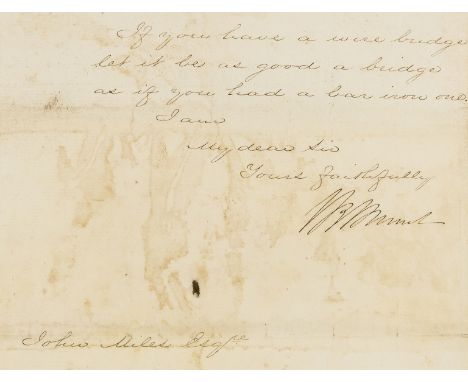 If you have a wire bridge
let it be as good a bridge
as if you had a bar iron one
I am
My dear Sir
Yours faithfully
I K Brunel
John Miles Esqre